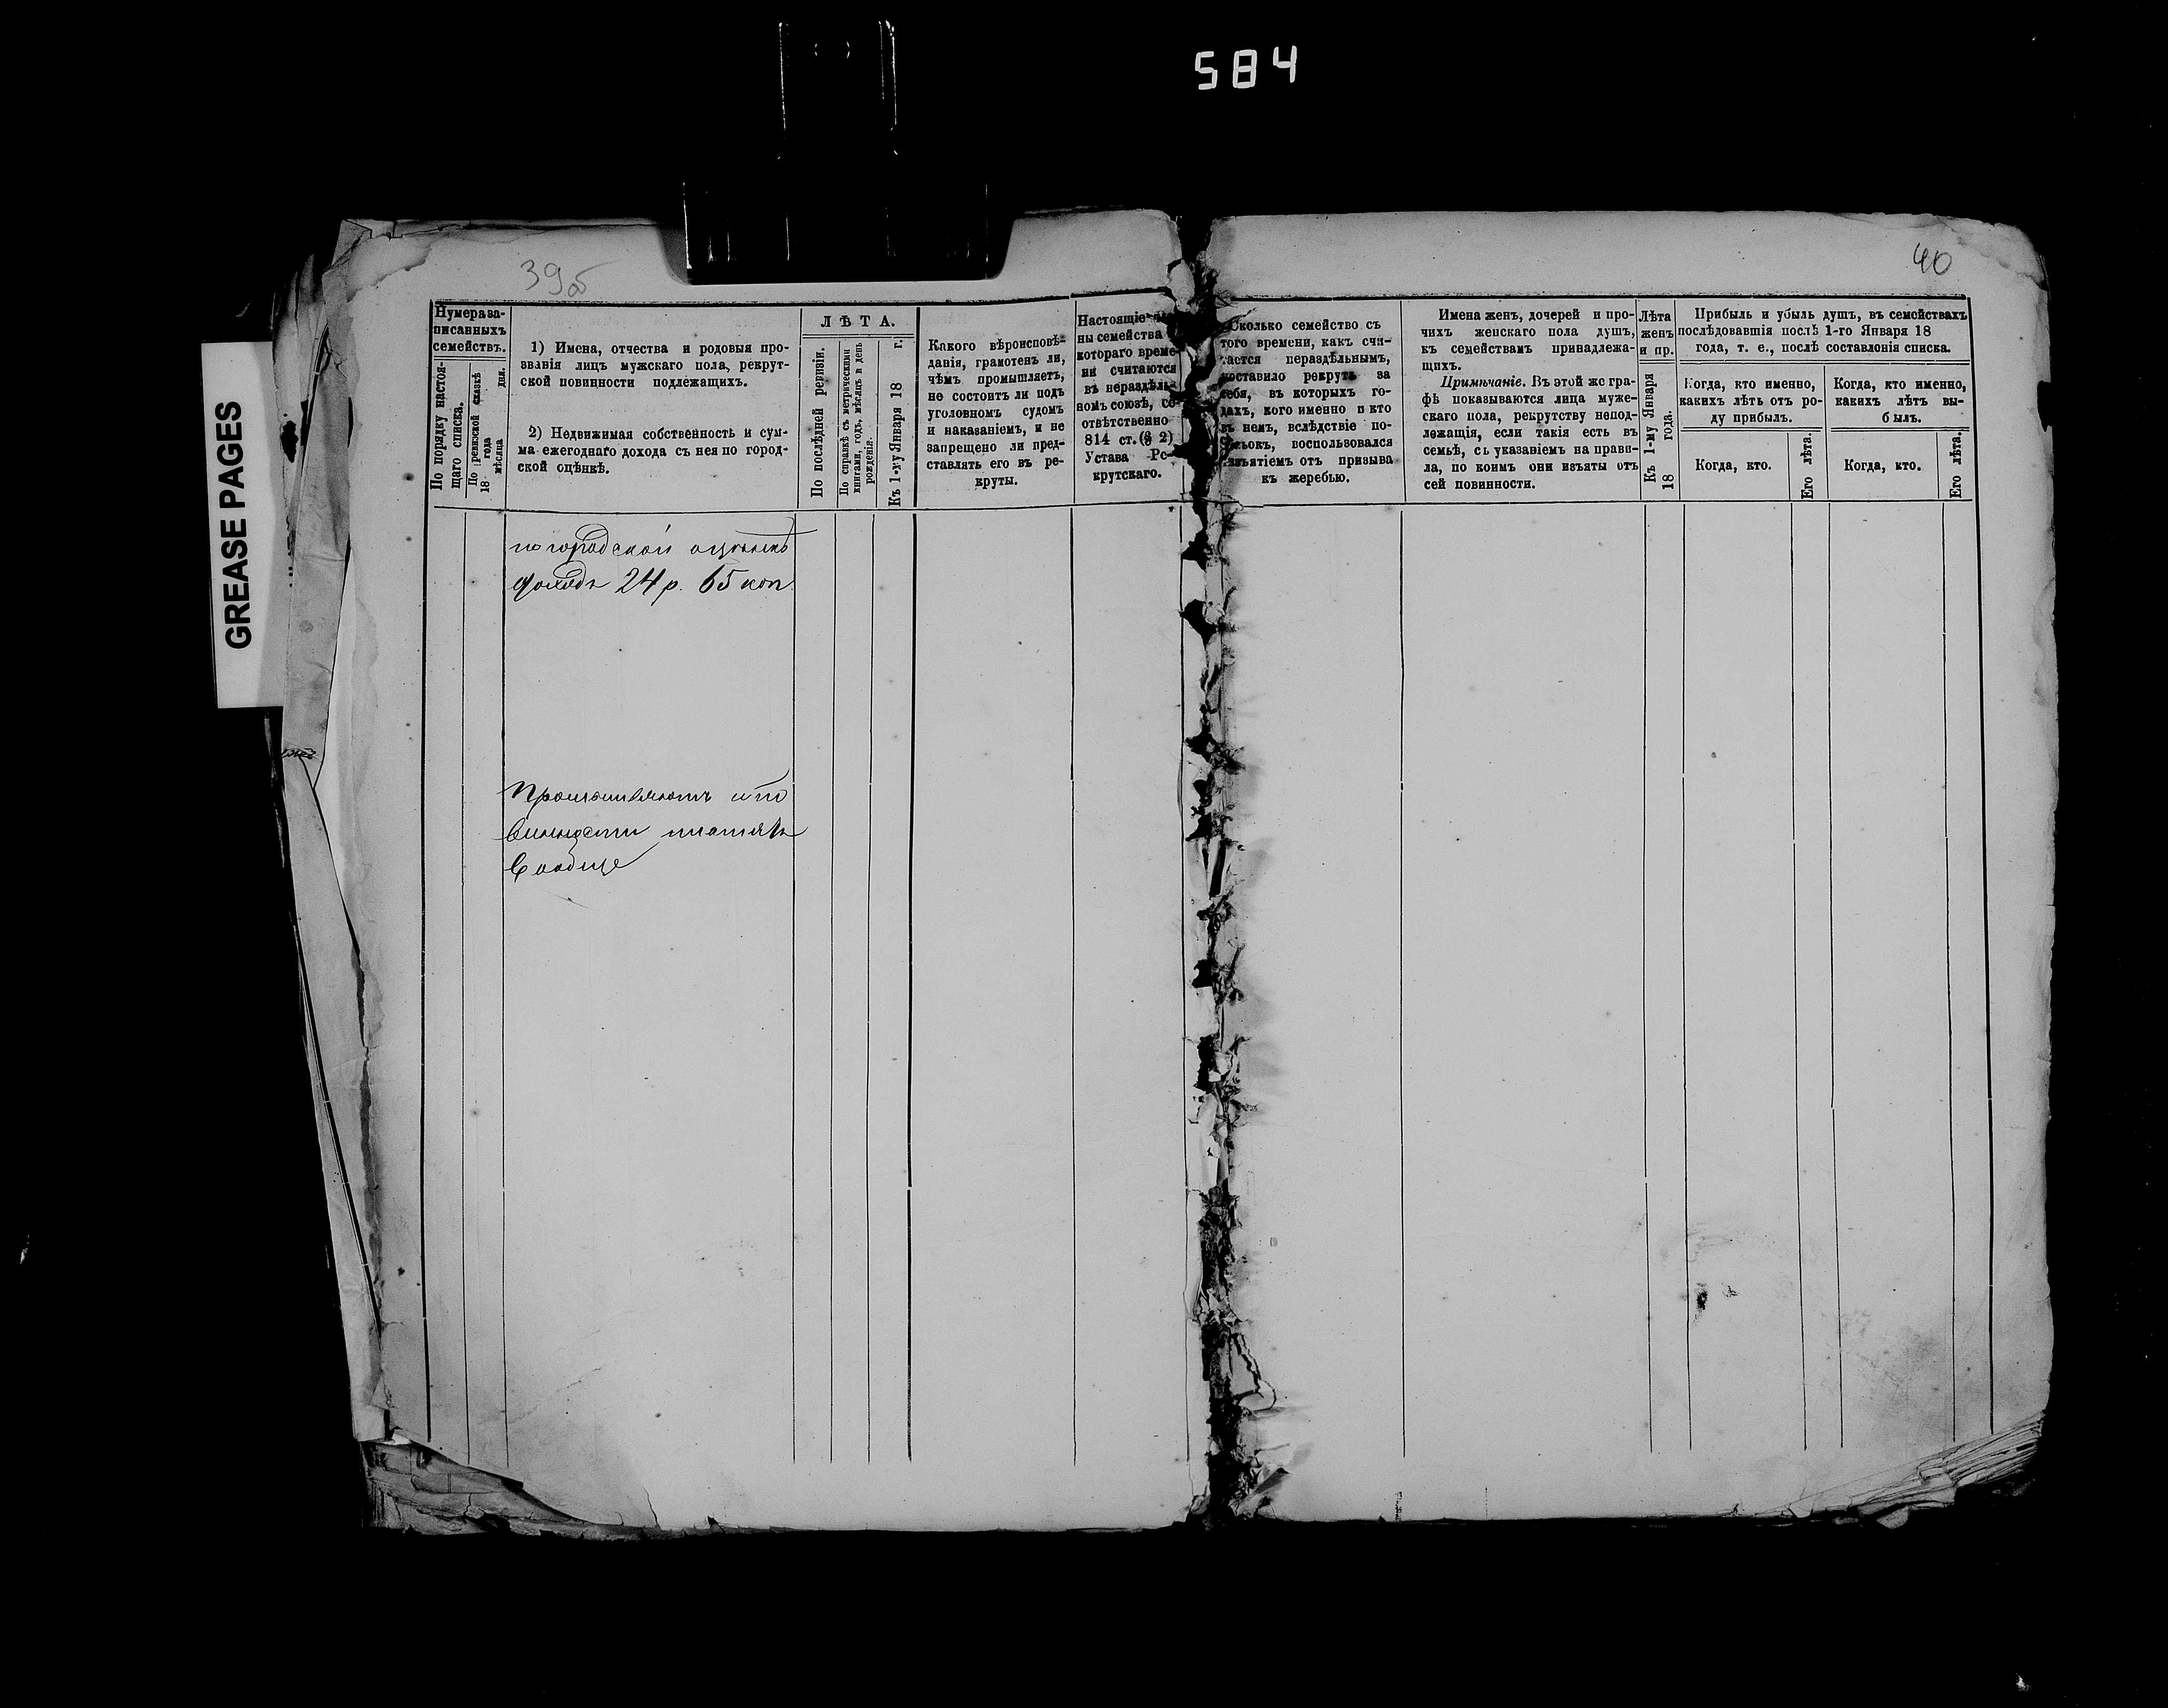 584
GREASE PAGES
39об
40
Нумера за-
писанныхъ
семействъ.
По порядку настоя-
щаго списка.
По ревизской сказкѣ
18 года
мѣсяца дня.
1) Имена, отчества и родовыя про-
званія лицъ мужскаго пола, рекрут-
ской повинности подлежащихъ.
2) Недвижимая собственность и сум-
ма ежегоднаго дохода съ нея по город-
ской оцѣнкѣ.
ЛѢТА.
По послѣдней ревизіи.
По справкѣ съ метрическими
книгами, годъ, мѣсяцъ и день
рожденія.
Къ 1-му Января 18 г.
Какого вѣроисповѣ-
данія, грамотенъ ли,
чѣмъ промышляетъ,
не состоитъ ли подъ
уголовнымъ судомъ
и наказаніемъ, и не
запрещено ли пред-
ставлять его въ ре-
круты.
Настоящіе
ны семейства
котораго време-
ни считаются
въ нераздѣль-
номъ союзѣ, со-
отвѣтственно
814 ст. (§ 2)
Устава Ре-
крутскаго.
Сколько семейство съ
того времени, какъ счи-
тается нераздѣльнымъ,
поставило рекрутъ за
себя, въ которыхъ го-
дахъ, кого именно и кто
въ немъ, вслѣдствіе по-
изъятіемъ отъ призыва
къ жеребью.
Имена женъ, дочерей и про-
чихъ женскаго пола душъ,
къ семействамъ принадлежа-
щихъ.
Примѣчаніе. Въ этой же гра-
фѣ показываются лица муже-
скаго пола, рекрутству непод-
лежащія, если такія есть въ
семьѣ, съ указаніемъ на прави-
ла, по коимъ они изъяты отъ
сей повинности.
Лѣта
женъ
и пр.
Къ 1-му Января
18 года.
Прибыль и убыль душъ, въ семействахъ
послѣдовавшія послѣ 1-го Января 18
года, т. е., послѣ составленія списка.
Когда, кто именно,
какихъ лѣтъ отъ ро-
ду прибылъ.
Когда, кто.
Его лѣта.
Когда, кто именно,
какихъ лѣтъ вы-
былъ.
Когда, кто.
Его лѣта.
по городской оцѣнкѣ
доходъ 24 р. 65 коп.
Промышляютъ и по
винности платятъ
вообще